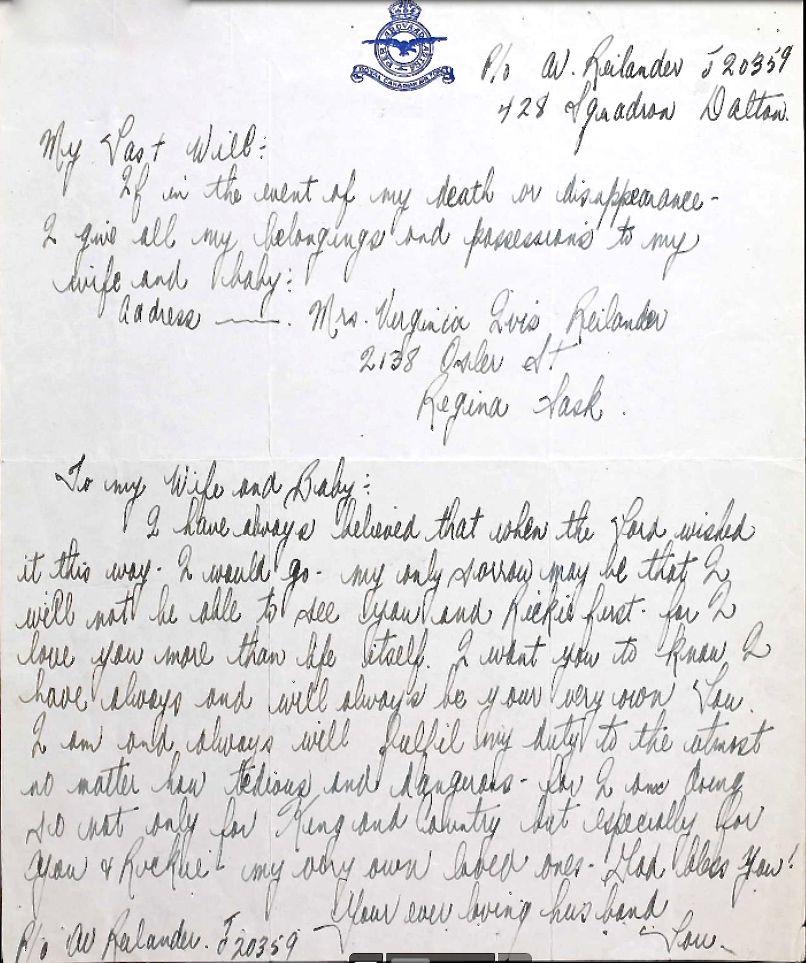 PER ARDUA AD ASTRA
ROYAL CANADIAN AIR FORCE
P/o AV. Reilander J20359
428 Squadron Dalton.
My Last Will:
If in the event of my death or disappearance -
I give all my belongings and possessions to my
wife and baby:
address ——. Mrs. Verginia Lois Reilander
2138 Osler St
Regina Sask.
To my Wife and Baby:
I have always believed that when the Lord wished
it this way - I would go - my only sorrow may be that I
will not be able to see you and Rickie first - for I
love you more than life itself. I want you to know I
have always and will always be your very own Lou.
I am and always will fulfil my duty to the utmost
no matter how tedious and dangerous - for I am doing
so not only for King and Country but especially for
You & Rickie - my very own loved ones - God bless You!
Your ever loving husband
P/o AV Reilander. J20359 Lou -